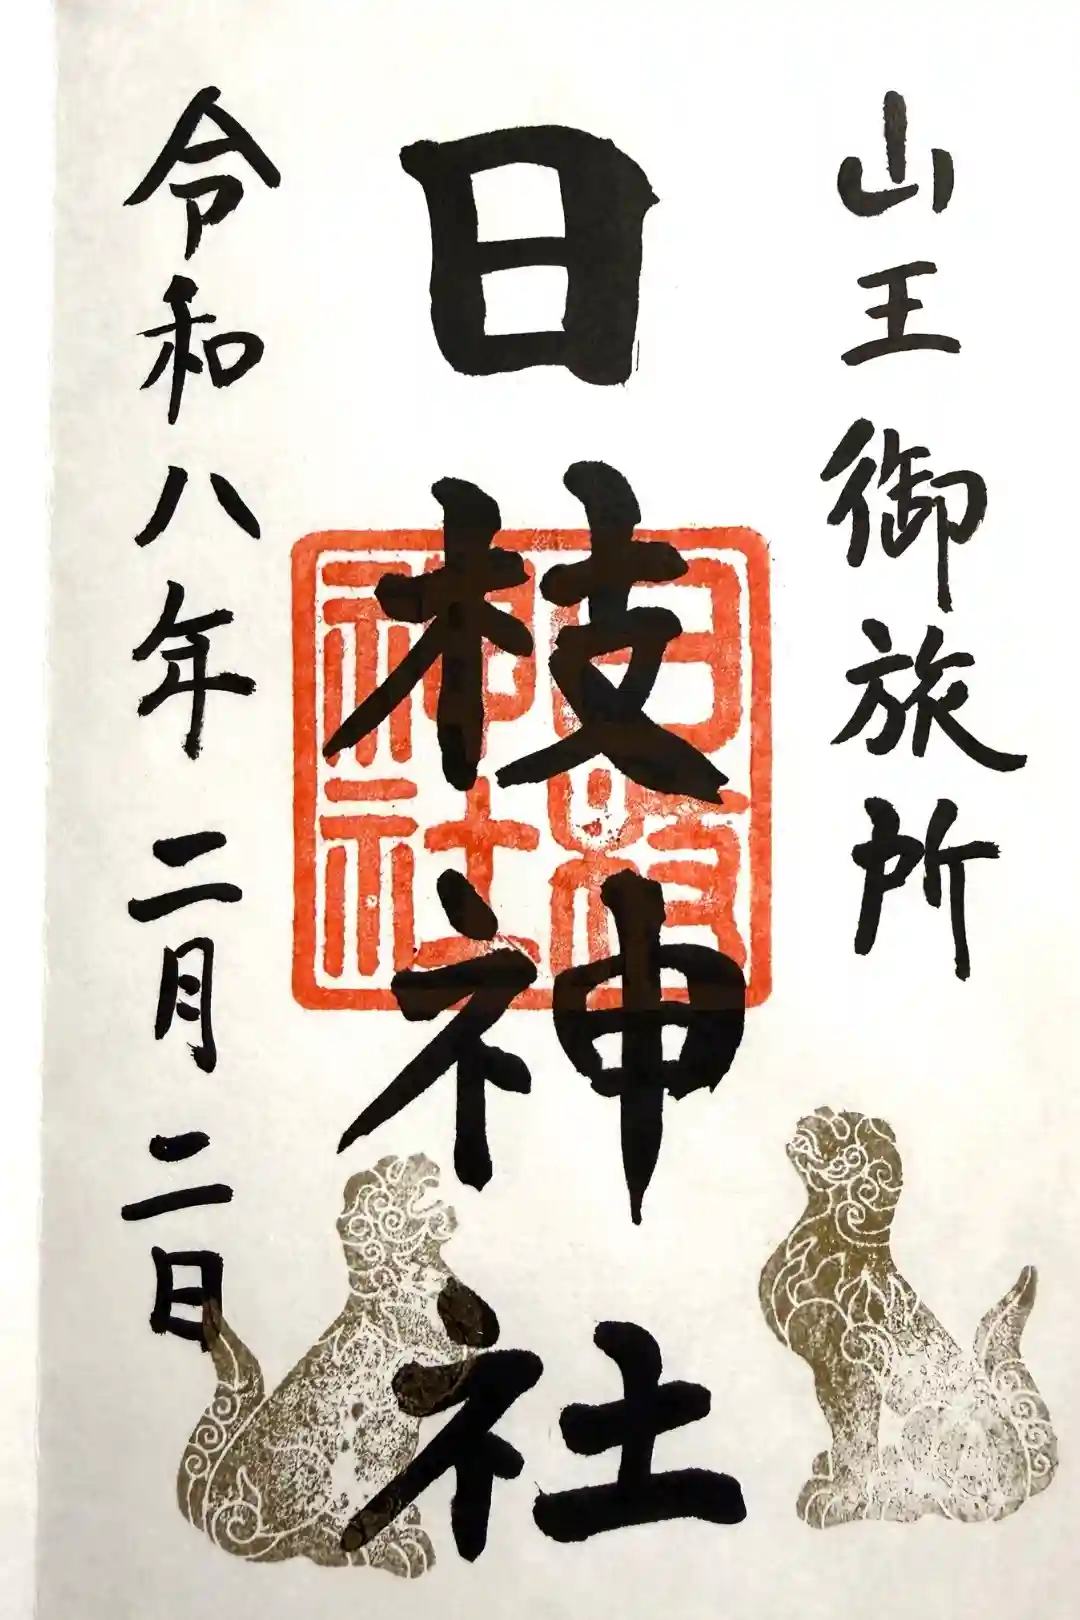 山王御旅所
日枝神社
日枝
神社
令和八年二月二日